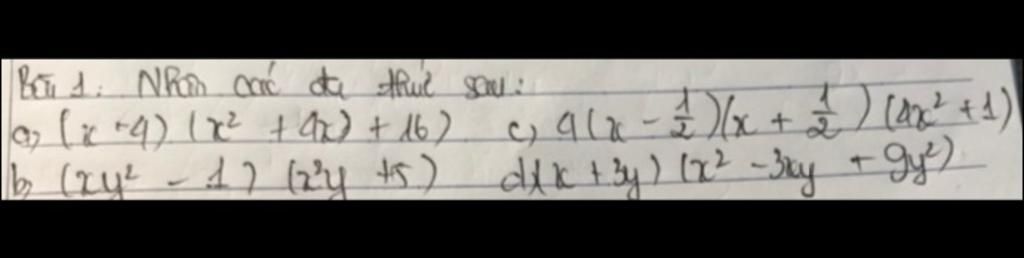 Bài 1: Nhân các đa thức sau:
a, (x - 4) (x² + 4x) + 16) c, 4(x - 1/2)(x + 1/2) (4x² + 1)
b, (xy² - 1) (x²y + 5) d, (x + 3y) (x² - 3xy + 9y²)